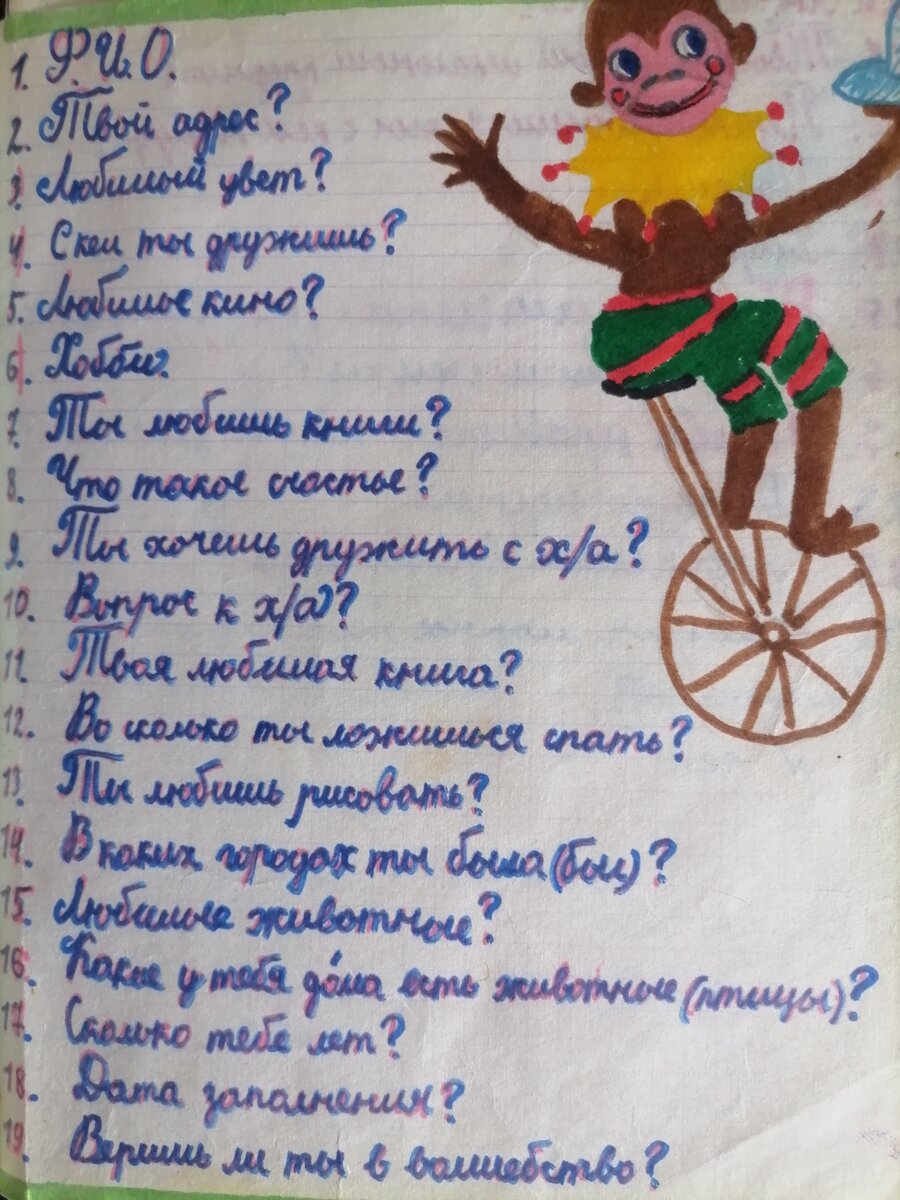 1. Ф.И.О.
2. Твой адрес?
3. Любимый цвет?
4. С кем ты дружишь?
5. Любимое кино?
6. Хобби.
7. Ты любишь книги?
8. Что такое счастье?
9. Ты хочешь дружить с х/а?
10. Вопрос к х/а?
11. Твоя любимая книга?
12. Во сколько ты ложишься спать?
13. Ты любишь рисовать?
14. В каких городах ты была (был)?
15. Любимые животные?
16. Какие у тебя до́ма есть животные (птицы)?
17. Сколько тебе лет?
18. Дата заполнения?
19. Веришь ли ты в волшебство?